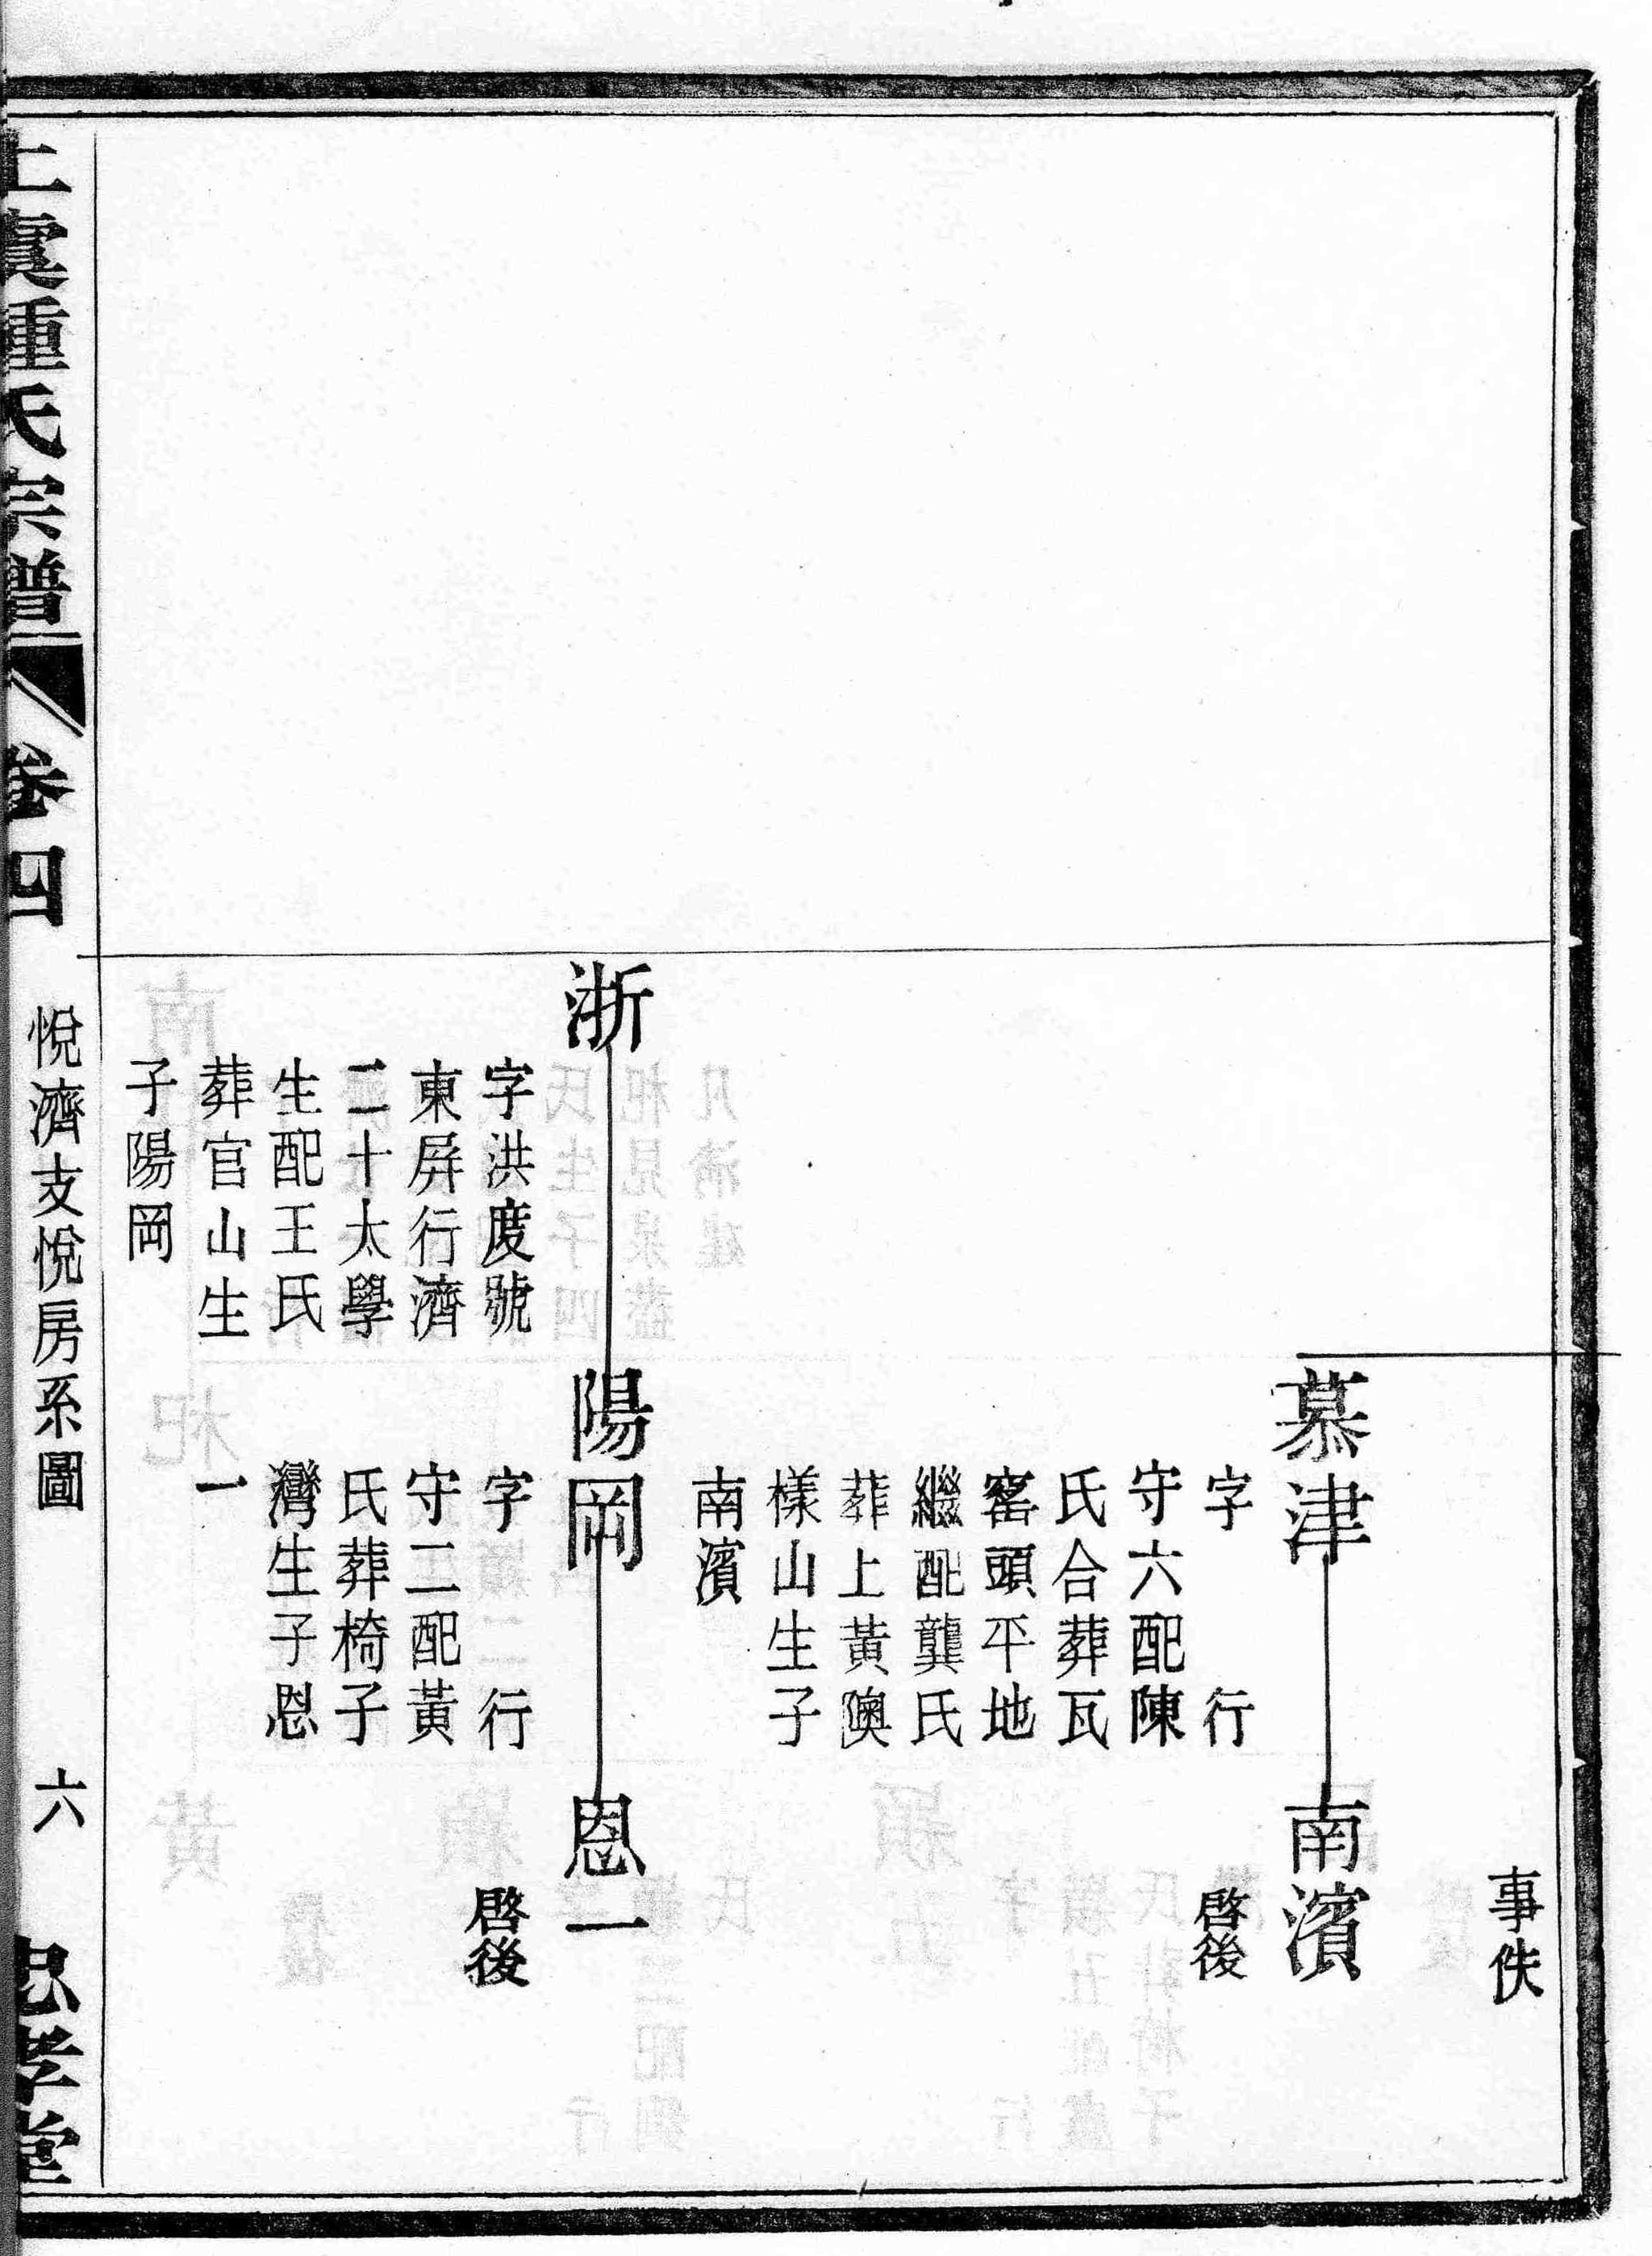 事佚
慕津
南濱
字　行
守六配陳
氏合葬瓦
窰頭平地
繼配龔氏
葬上黃隩
樣山生子
南濱
啓後
浙
陽岡
恩一
字洪度號
東屏行濟
二十太學
生配王氏
葬官山生
子陽岡
字　行
守二配黃
氏葬椅子
灣生子恩
一
啓後
上虞鍾氏宗譜
卷四
悅濟支悅房系圖
六
忠孝堂